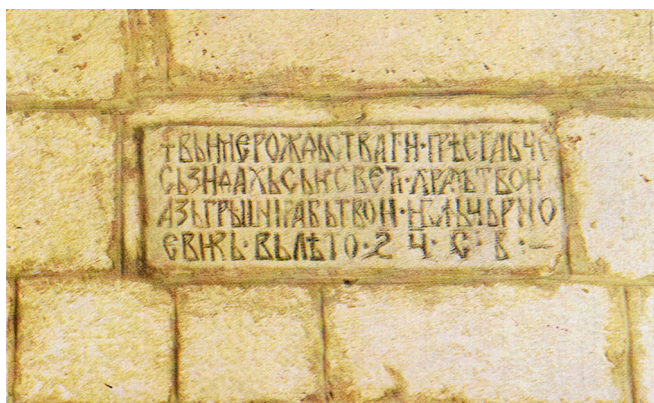 †ВЬИМЕРОЖДЬСТВАТИ·ПРѢСТАЬЧЕ
СЬЗИДАХЬСЬИСВЕТИ·ХРАМЬТВОИ
АЗЬГРѢШНИРАБЬТВОИ·ИВАНЬЧЬРНО
ЕВИКЬ·ВЬЛѢТО·2·Ч·С·В·–